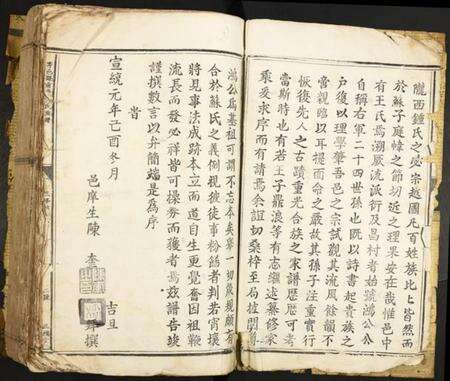 隴西鍾氏之 宗越國凡百姓族比比皆然而
於蘇子庭 之節切近之理果安在哉惟邑中
有王氏焉溯厥流派衍及昌村者始號鴻公公
自稱右軍二十四世孫也既以詩書起貴族之
戶復以理學肇吾邑之宗試觀其流風餘韻不
啻親臨以耳提而命之嚴故其孫子注重實行
恢復先人之古蹟重光合族之家譜歷歷可考
當斯時也有若王子鼎浪等有志繼述纂修家
乘爰求序而有請焉余誼切桑梓至局披閱
鴻公為基祖可謂不忘本矣舉一切義規頗有
合於蘇氏之義例視彼徒事粉飾者判若霄壤
將見事法成跡本立而道自生更覺奮因祖鞭
流長而發必祥皆可操券而獲者焉茲譜告竣
謹撰數言以弁簡端是為序
旹
宣統元年己酉冬月
邑庠生陳 奎 吉旦
撰